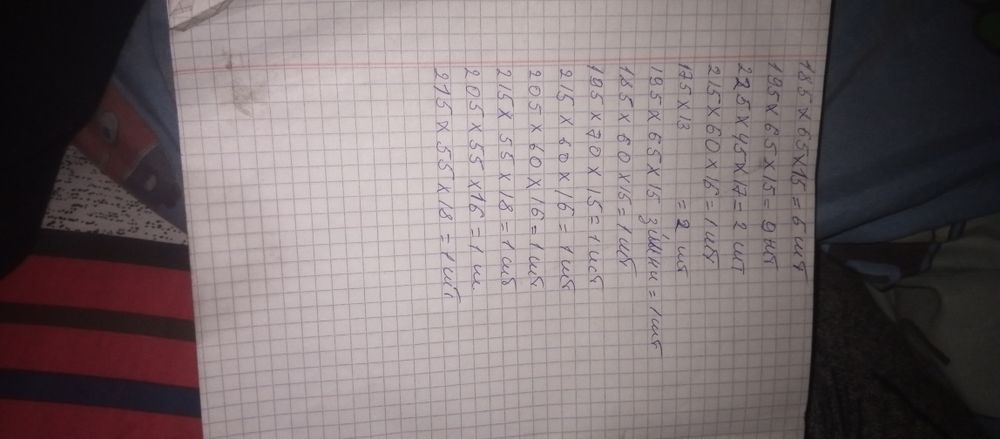 185 x 65 x 15 = 6 шт
195 x 65 x 15 = 9 шт
225 x 45 x 17 = 2 шт
215 x 60 x 16 = 1 шт
175 x 13 = 2 шт
195 x 65 x 15 зимни = 1 шт
185 x 60 x 15 = 1 шт
195 x 70 x 15 = 1 шт
215 x 60 x 16 = 1 шт
205 x 60 x 16 = 1 шт
215 x 55 x 18 = 1 шт
205 x 55 x 16 = 1 ш
215 x 55 x 18 = 1 шт